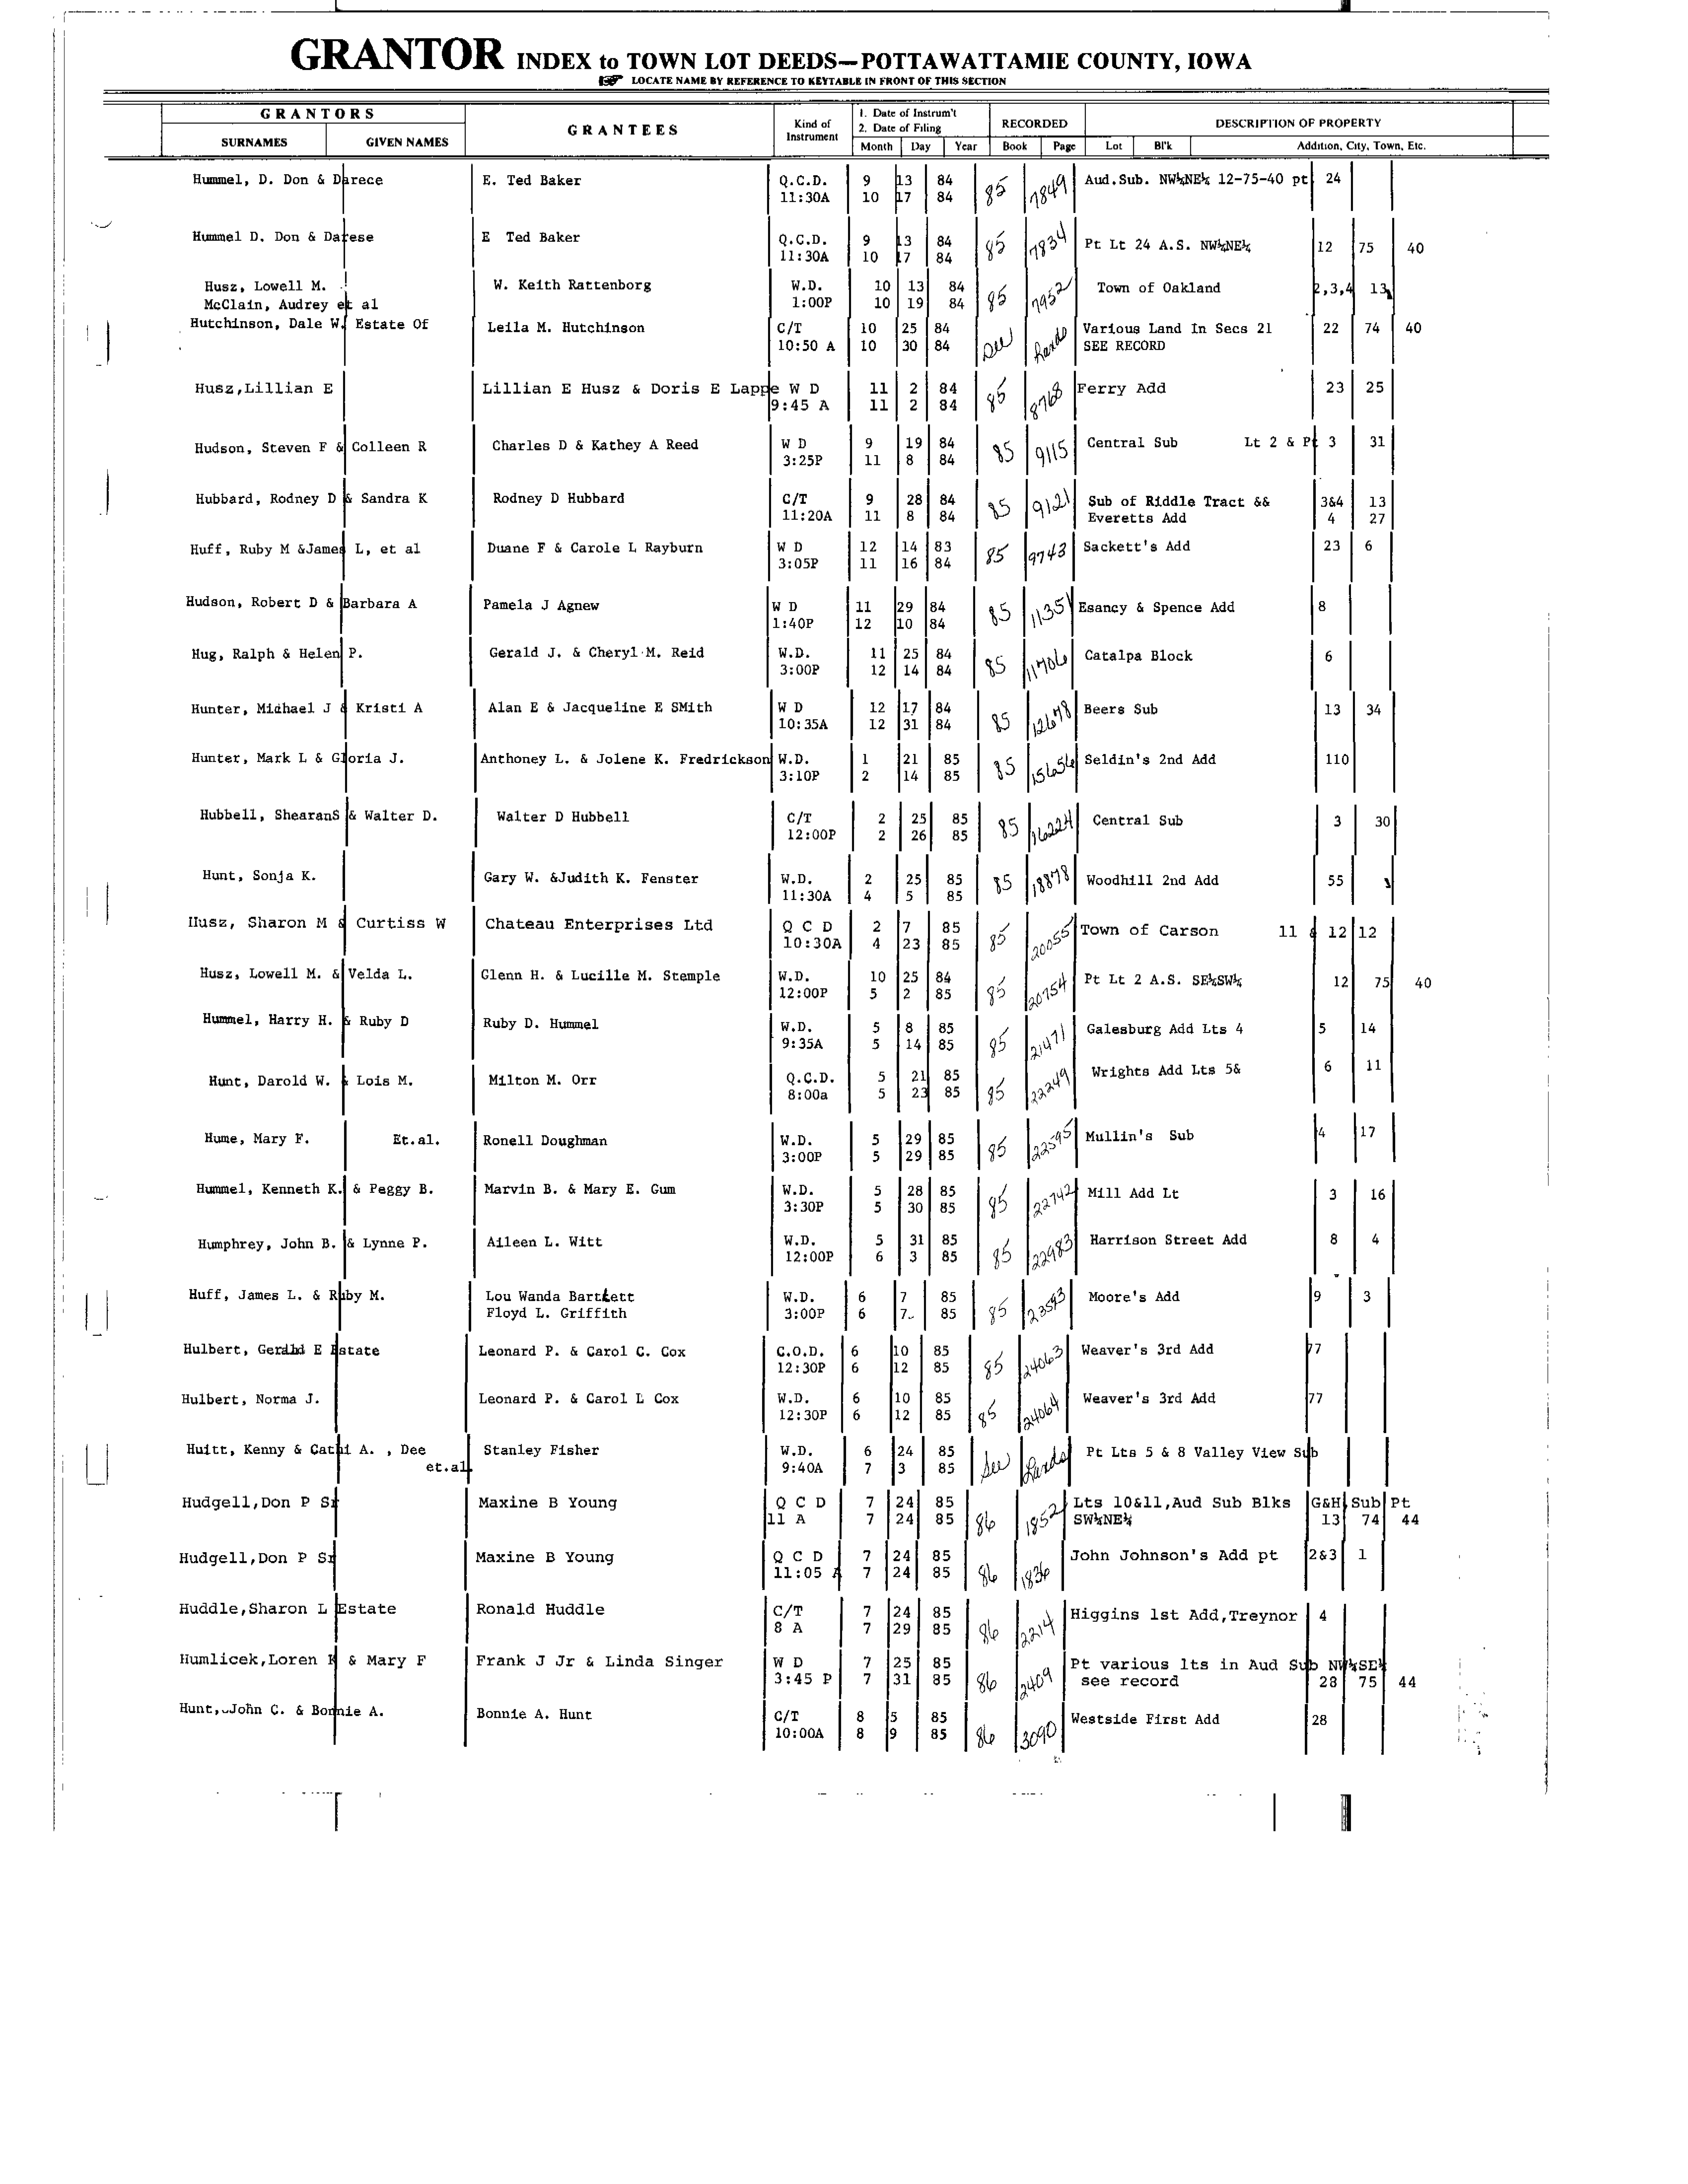 GRANTOR INDEX to TOWN LOT DEEDS—POTTAWATTAMIE COUNTY, IOWA
LOCATE NAME BY REFERENCE TO KEYTABLE IN FRONT OF THIS SECTION
GRANTORS GRANTEES Kind of Instrument 1. Date of Instrum't 2. Date of Filing RECORDED DESCRIPTION OF PROPERTY
SURNAMES GIVEN NAMES Month Day Year Book Page Lot Bl'k Addition, City, Town, Etc.
Hummel, D. Don & Darece E. Ted Baker Q.C.D. 9 13 84 85 7849 Aud.Sub. NW¼NE¼ 12-75-40 pt 24
11:30A 10 17 84
Hummel D. Don & Darese E Ted Baker Q.C.D. 9 13 84 85 7834 Pt Lt 24 A.S. NW¼NE¼ 12 75 40
11:30A 10 17 84
Husz, Lowell M. W. Keith Rattenborg W.D. 10 13 84 85 7952 Town of Oakland 2,3,4 13
McClain, Audrey et al 1:00P 10 19 84
Hutchinson, Dale W. Estate Of Leila M. Hutchinson C/T 10 25 84 See Lands Various Land In Secs 21 22 74 40
10:50 A 10 30 84 SEE RECORD
Husz,Lillian E Lillian E Husz & Doris E Lappe W D 11 2 84 85 8768 Ferry Add 23 25
9:45 A 11 2 84
Hudson, Steven F & Colleen R Charles D & Kathey A Reed W D 9 19 84 85 9115 Central Sub Lt 2 & Pt 3 31
3:25P 11 8 84
Hubbard, Rodney D & Sandra K Rodney D Hubbard C/T 9 28 84 85 9121 Sub of Riddle Tract && 3&4 13
11:20A 11 8 84 Everetts Add 4 27
Huff, Ruby M &James L, et al Duane F & Carole L Rayburn W D 12 14 83 85 9743 Sackett's Add 23 6
3:05P 11 16 84
Hudson, Robert D & Barbara A Pamela J Agnew W D 11 29 84 85 11351 Esancy & Spence Add 8
1:40P 12 10 84
Hug, Ralph & Helen P. Gerald J. & Cheryl M. Reid W.D. 11 25 84 85 11706 Catalpa Block 6
3:00P 12 14 84
Hunter, Michael J & Kristi A Alan E & Jacqueline E SMith W D 12 17 84 85 12678 Beers Sub 13 34
10:35A 12 31 84
Hunter, Mark L & Gloria J. Anthoney L. & Jolene K. Fredrickson W.D. 1 21 85 85 15656 Seldin's 2nd Add 110
3:10P 2 14 85
Hubbell, ShearanS & Walter D. Walter D Hubbell C/T 2 25 85 85 16224 Central Sub 3 30
12:00P 2 26 85
Hunt, Sonja K. Gary W. &Judith K. Fenster W.D. 2 25 85 85 18878 Woodhill 2nd Add 55
11:30A 4 5 85
Husz, Sharon M & Curtiss W Chateau Enterprises Ltd Q C D 2 7 85 85 20055 Town of Carson 11 & 12 12
10:30A 4 23 85
Husz, Lowell M. & Velda L. Glenn H. & Lucille M. Stemple W.D. 10 25 84 85 20754 Pt Lt 2 A.S. SE¼SW¼ 12 75 40
12:00P 5 2 85
Hummel, Harry H. & Ruby D Ruby D. Hummel W.D. 5 8 85 85 21471 Galesburg Add Lts 4 5 14
9:35A 5 14 85
Hunt, Darold W. & Lois M. Milton M. Orr Q.C.D. 5 21 85 85 22249 Wrights Add Lts 5& 6 11
8:00a 5 23 85
Hume, Mary F. Et.al. Ronell Doughman W.D. 5 29 85 85 22595 Mullin's Sub 4 17
3:00P 5 29 85
Hummel, Kenneth K. & Peggy B. Marvin B. & Mary E. Gum W.D. 5 28 85 85 22742 Mill Add Lt 3 16
3:30P 5 30 85
Humphrey, John B. & Lynne P. Aileen L. Witt W.D. 5 31 85 85 22983 Harrison Street Add 8 4
12:00P 6 3 85
Huff, James L. & Ruby M. Lou Wanda Bartlett W.D. 6 7 85 85 23593 Moore's Add 9 3
Floyd L. Griffith 3:00P 6 7 85
Hulbert, Gerald E Estate Leonard P. & Carol C. Cox C.O.D. 6 10 85 85 24063 Weaver's 3rd Add 77
12:30P 6 12 85
Hulbert, Norma J. Leonard P. & Carol L Cox W.D. 6 10 85 85 24064 Weaver's 3rd Add 77
12:30P 6 12 85
Huitt, Kenny & Cathi A. , Dee Stanley Fisher W.D. 6 24 85 See Lands Pt Lts 5 & 8 Valley View Sub
et.al. 9:40A 7 3 85
Hudgell,Don P Sr Maxine B Young Q C D 7 24 85 86 1852 Lts 10&11,Aud Sub Blks G&H Sub Pt
11 A 7 24 85 SW¼NE¼ 13 74 44
Hudgell,Don P Sr Maxine B Young Q C D 7 24 85 86 1836 John Johnson's Add pt 2&3 1
11:05 A 7 24 85
Huddle,Sharon L Estate Ronald Huddle C/T 7 24 85 86 2214 Higgins 1st Add,Treynor 4
8 A 7 29 85
Humlicek,Loren K & Mary F Frank J Jr & Linda Singer W D 7 25 85 86 2409 Pt various lts in Aud Sub NW¼SE¼
3:45 P 7 31 85 see record 28 75 44
Hunt, John C. & Bonnie A. Bonnie A. Hunt C/T 8 5 85 86 3090 Westside First Add 28
10:00A 8 9 85